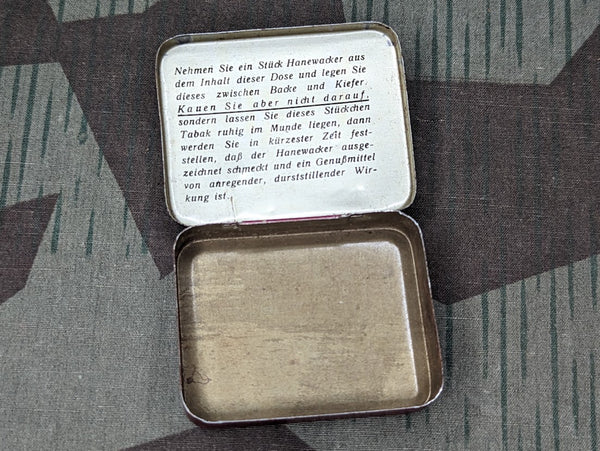 Nehmen Sie ein Stück Hanewacker aus
dem Inhalt dieser Dose und legen Sie
dieses zwischen Backe und Kiefer.
Kauen Sie aber nicht darauf,
sondern lassen Sie dieses Stückchen
Tabak ruhig im Munde liegen, dann
werden Sie in kürzester Zeit fest-
stellen, daß der Hanewacker ausge-
zeichnet schmeckt und ein Genußmittel
von anregender, durststillender Wir-
kung ist.